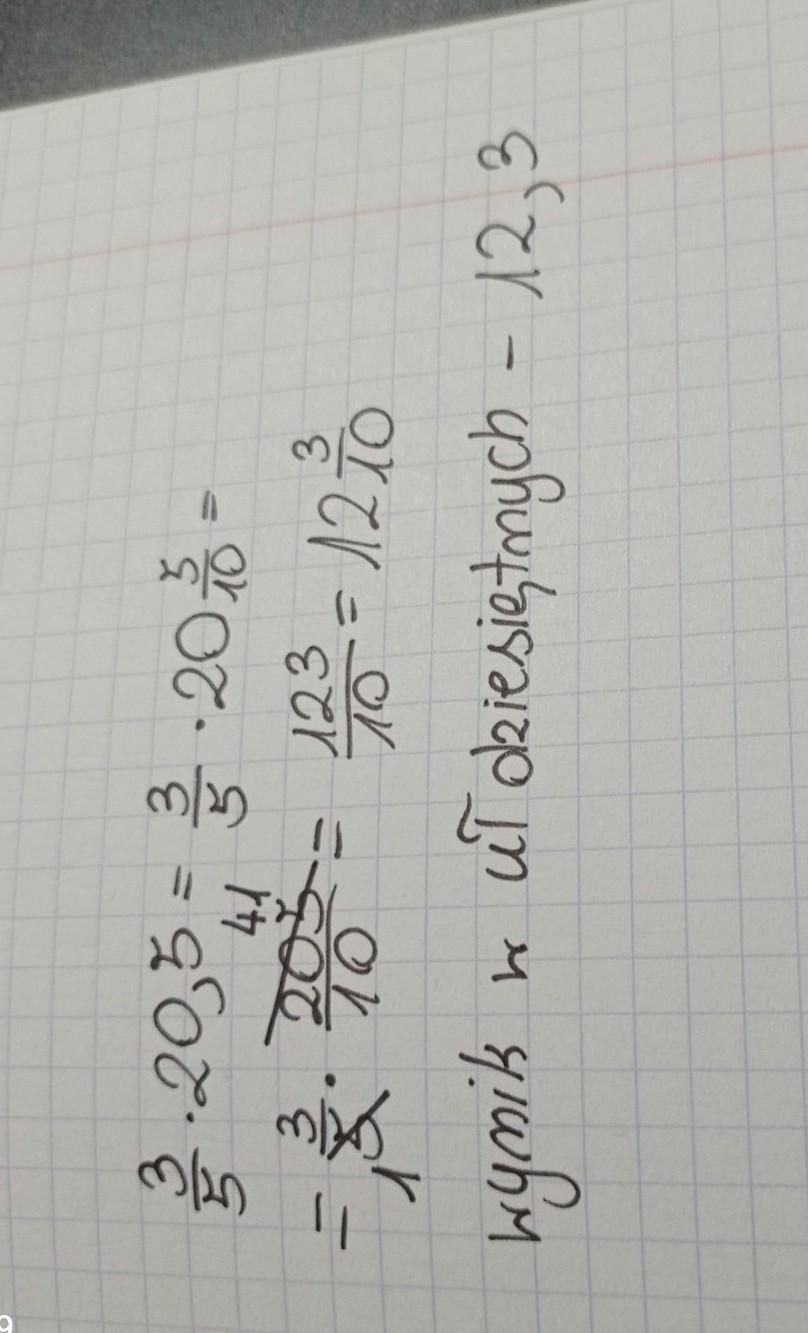 3/5 · 20,5 = 3/5 · 20 5/10 =
= 3/5 1 · 205/10 41 = 123/10 = 12 3/10
wynik w uł dziesiętnych - 12,3
9